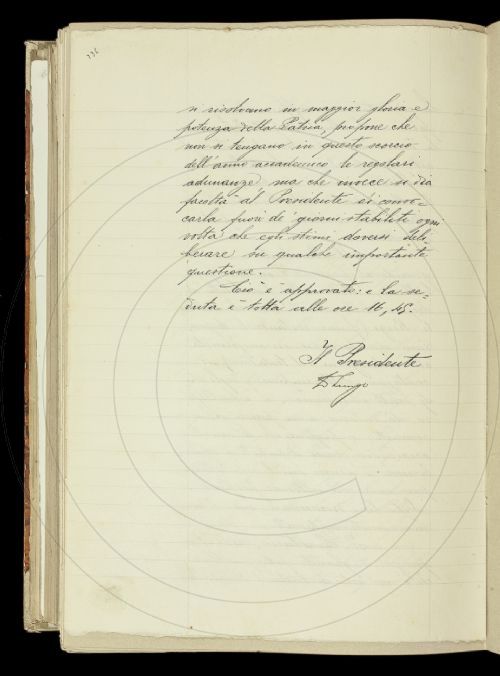 si risolvano in maggior gloria e
potenza della Patria, propone che
non si tengano in questo scorcio
dell'anno accademico le regolari
adunanze ma che invece si dia
facoltà al Presidente di convo-
carla fuori de' giorni stabiliti ogni
volta che egli stimi doversi deli-
berare su qualche importante
questione.
Ciò è approvato: e la se-
duta è tolta alle ore 16, 45.
Il Presidente